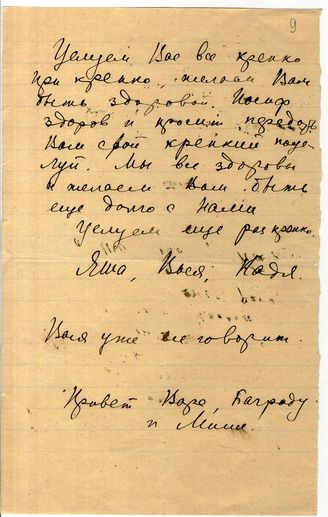 9
Целуем Вас все крепко
при крепко, желаем Вам
быть здоровой. Иосиф
здоров и просит передать
Вам свой крепкий поце-
луй. Мы все здоровы
и желаем Вам быть
еще долго с нами
Целуем еще раз крепко.
Яша, Вася, Надя.
Вася уже говорит.
Привет Варе, Баграду
и Маше.